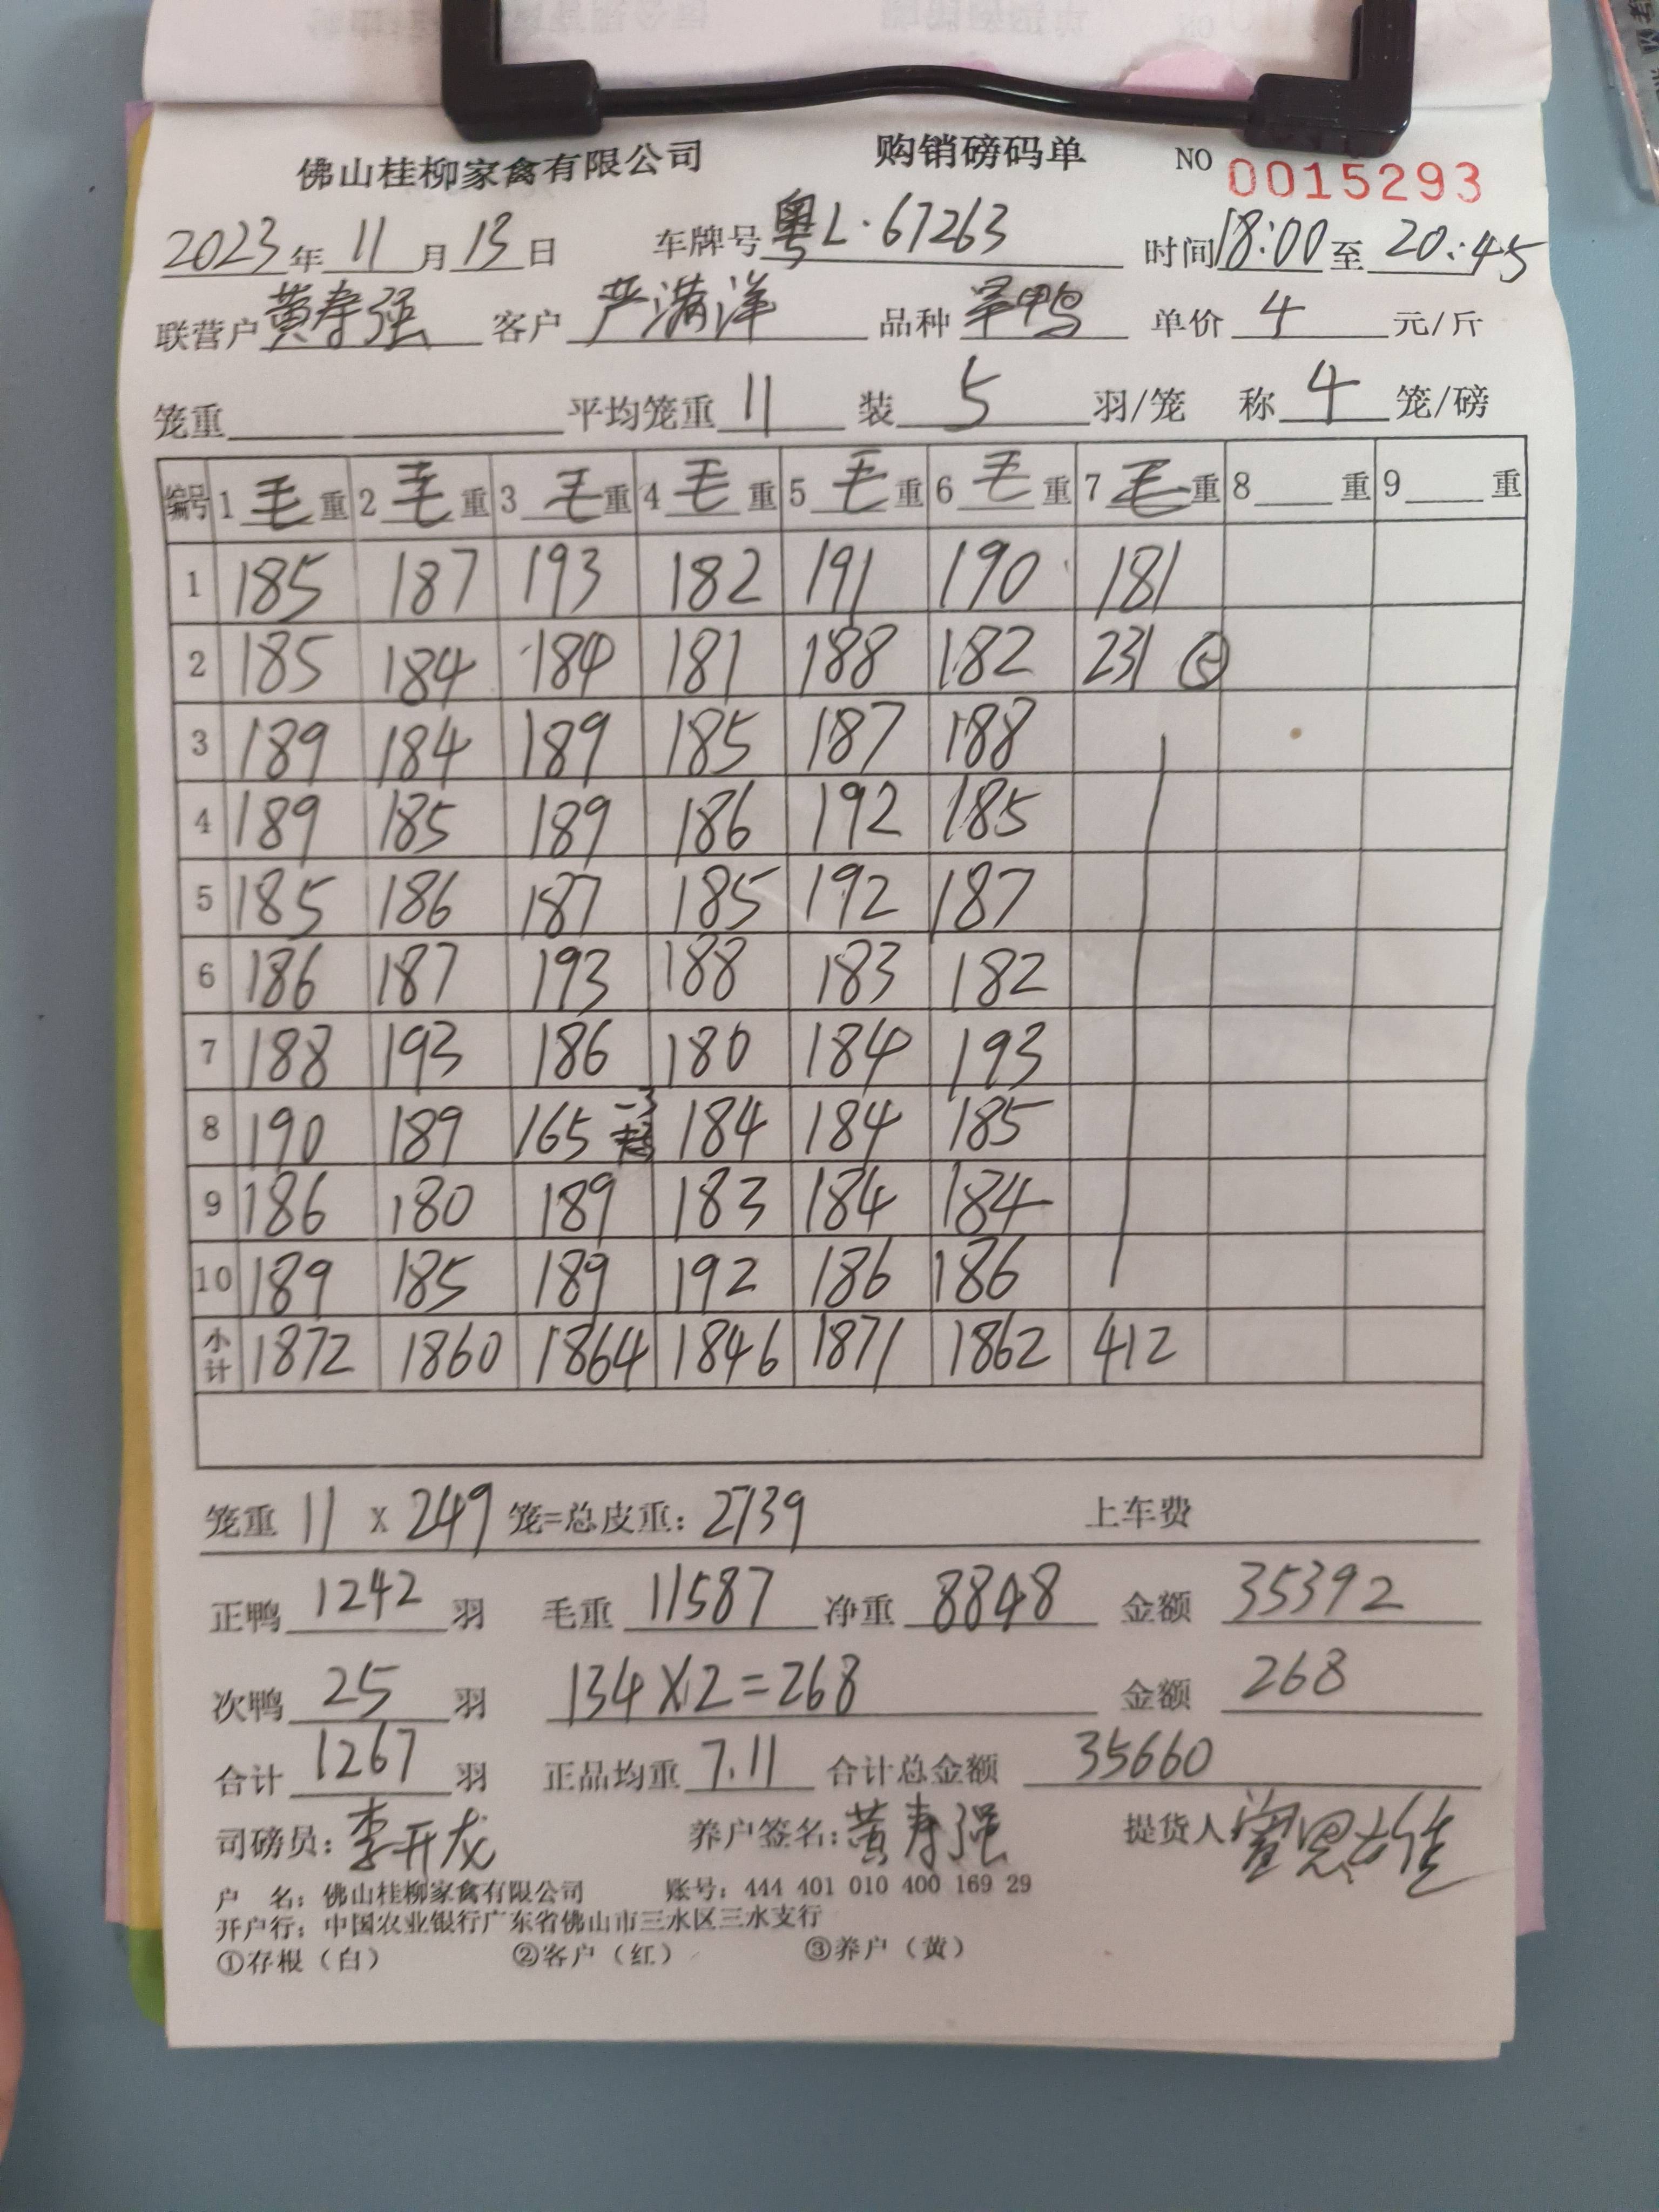 佛山桂柳家禽有限公司 购销磅码单 NO 0015293
2023年 11月 13日 车牌号 粤L·67263 时间 18:00 至 20:45
联营户 黄寿强 客户 严满洋 品种 鸭 单价 4 元/斤
笼重 平均笼重 11 装 5 羽/笼 称 4 笼/磅
编号 1 毛 重 2 毛 重 3 毛 重 4 毛 重 5 毛 重 6 毛 重 7 毛 重 8 重 9 重
1 185 187 193 182 191 190 181
2 185 184 184 181 188 182 231 ⑤
3 189 184 189 185 187 188
4 189 185 189 186 192 185
5 185 186 187 185 192 187
6 186 187 193 188 183 182
7 188 193 186 180 184 193
8 190 189 165 184 184 185
9 186 180 189 183 184 184
10 189 185 189 192 186 186
小计 1872 1860 1864 1846 1871 1862 412
笼重 11 X 249 笼=总皮重: 2739 上车费
正鸭 1242 羽 毛重 11587 净重 8848 金额 35392
次鸭 25 羽 134X2=268 金额 268
合计 1267 羽 正品均重 7.11 合计总金额 35660
司磅员: 李开龙 养户签名: 黄寿强 提货人
户 名: 佛山桂柳家禽有限公司 账号: 444 401 010 400 169 29
开户行: 中国农业银行广东省佛山市三水区三水支行
①存根（白） ②客户（红） ③养户（黄）